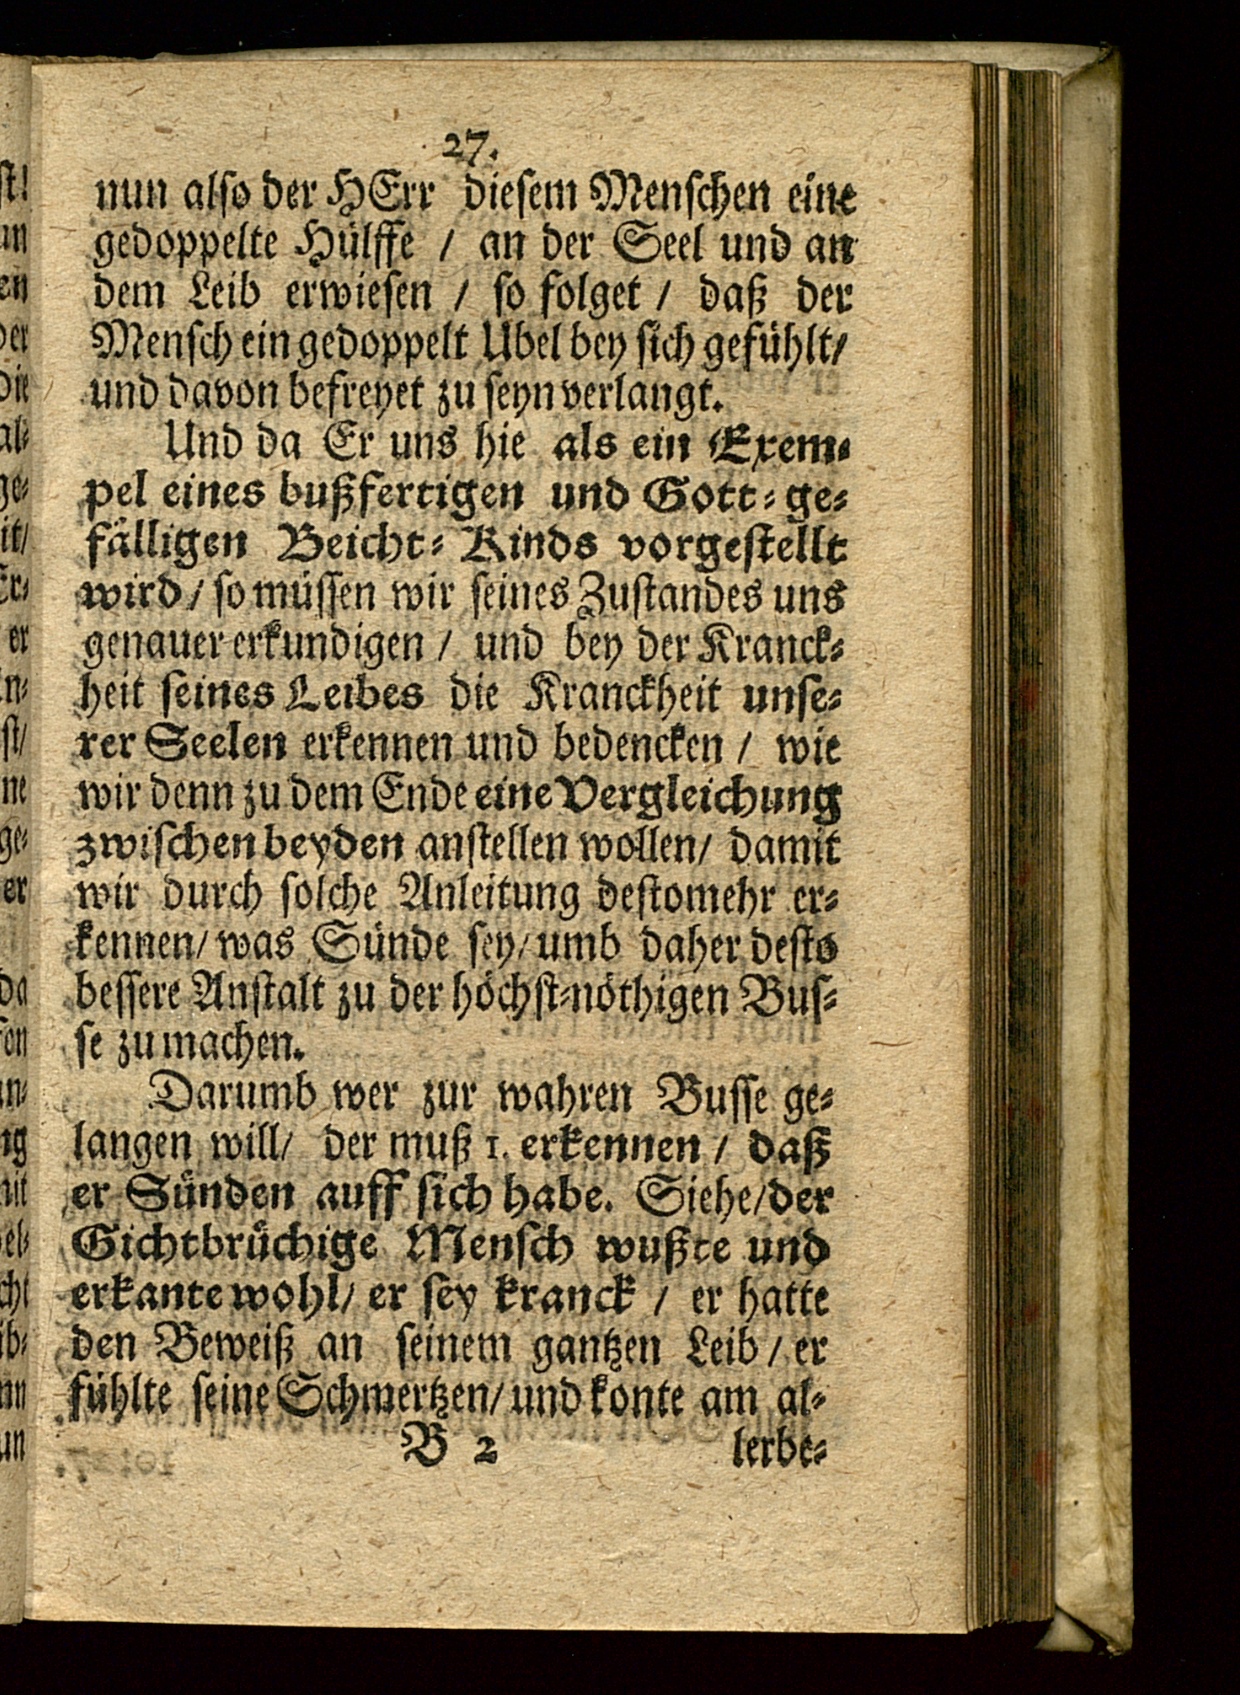 27.
nun also der HErr diesem Menschen eine
gedoppelte Hülffe / an der Seel und an
dem Leib erwiesen / so folget / daß der
Mensch ein gedoppelt Ubel bey sich gefühlt/
und davon befreyet zu seyn verlangt.
Und da Er uns hie als ein Exem-
pel eines bußfertigen und Gott-ge-
fälligen Beicht-Kinds vorgestellt
wird / so müssen wir seines Zustandes uns
genauer erkundigen / und bey der Kranck-
heit seines Leibes die Kranckheit unse-
rer Seelen erkennen und bedencken / wie
wir denn zu dem Ende eine Vergleichung
zwischen beyden anstellen wollen/ damit
wir durch solche Anleitung destomehr er-
kennen/ was Sünde sey/ umb daher desto
bessere Anstalt zu der höchst-nöthigen Bus-
se zu machen.
Darumb wer zur wahren Busse ge-
langen will/ der muß 1. erkennen / daß
er Sünden auff sich habe. Siehe/der
Gichtbrüchige Mensch wußte und
erkante wohl/ er sey kranck / er hatte
den Beweiß an seinem gantzen Leib / er
fühlte seine Schmertzen/ und konte am al-
B 2 lerbe-